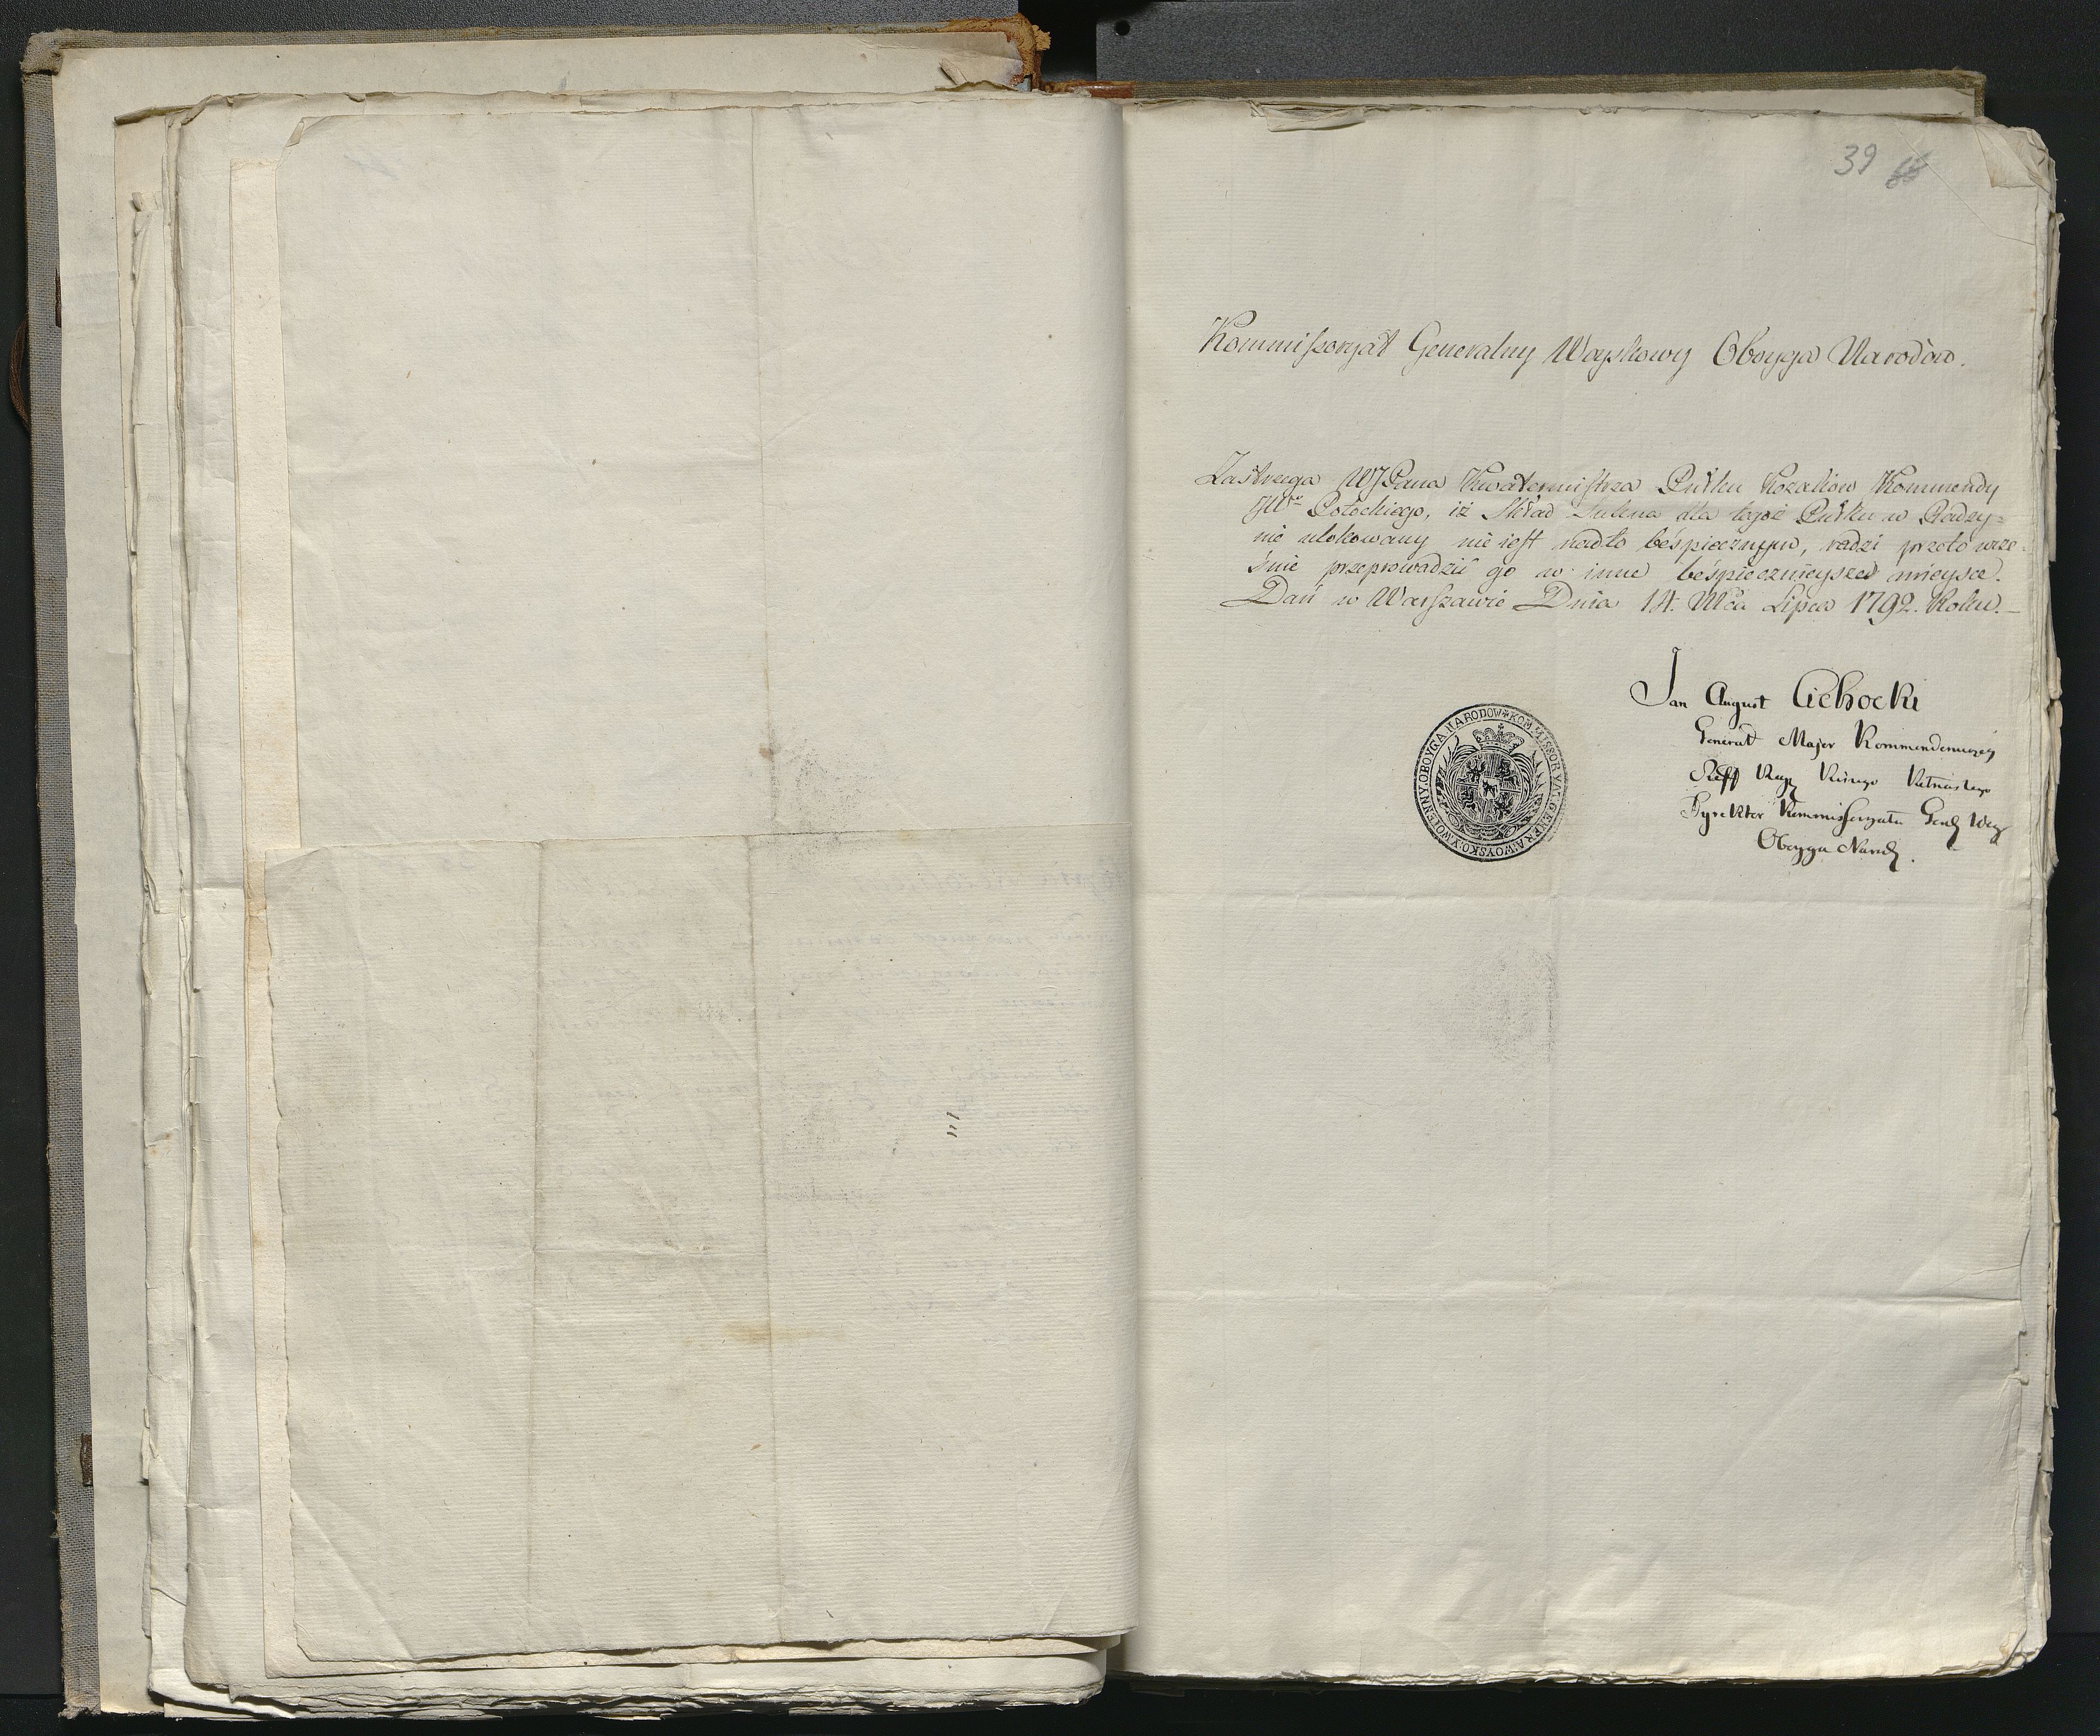 39
Kommissoryat Generalny Woyskowy Oboyga Narodow.
Zastrzega WJPana Kwatermistrza Pułku Kozakow Kommendy
JW° Potockiego, iż Skład Sukna dla tegoż Pułku w Radzy=
nie ulokowany nie iest nadto bespiecznym, radzi przeto wcze=
śnie przeprowadzić go w inne bespiecznieysze mieysce.
Dań w Warszawie Dnia 14. Mca Lipca 1792. Roku.
Jan August Cichocki
Generał Major Kommenderuiący
Szeff Reg
Dyrektor Kommissoryatu Genlg Woy
Oboyga Narod.
KOMMISSORYAT GENERA: WOYSKO: Y WOIENNY. OBOYGA NARODOW